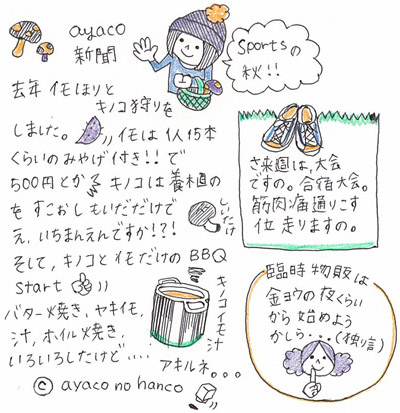 ayaco
新聞
Sportsの
秋!!
去年 イモほりと
キノコ狩りを
しました。イモは1人15本
くらいのみやげ付き!!で
500円とか キノコは養植の
を すこおし もいだだけで
え、いちまんえんですか!?!
しいたけ
そして、キノコとイモだけの BBQ
Start
バター焼き、ヤキイモ、
汁、ホイル焼き、
いろいろしたけど・・・・
キノコイモ汁
アキルネ。。。
© ayaco no hanco
さ来週は、大会
ですの。合宿大会。
筋肉痛通りこす
位 走りますの。
臨時物販は
金ヨウの夜くらい
から 始めよう
かしら・・・(独り言)